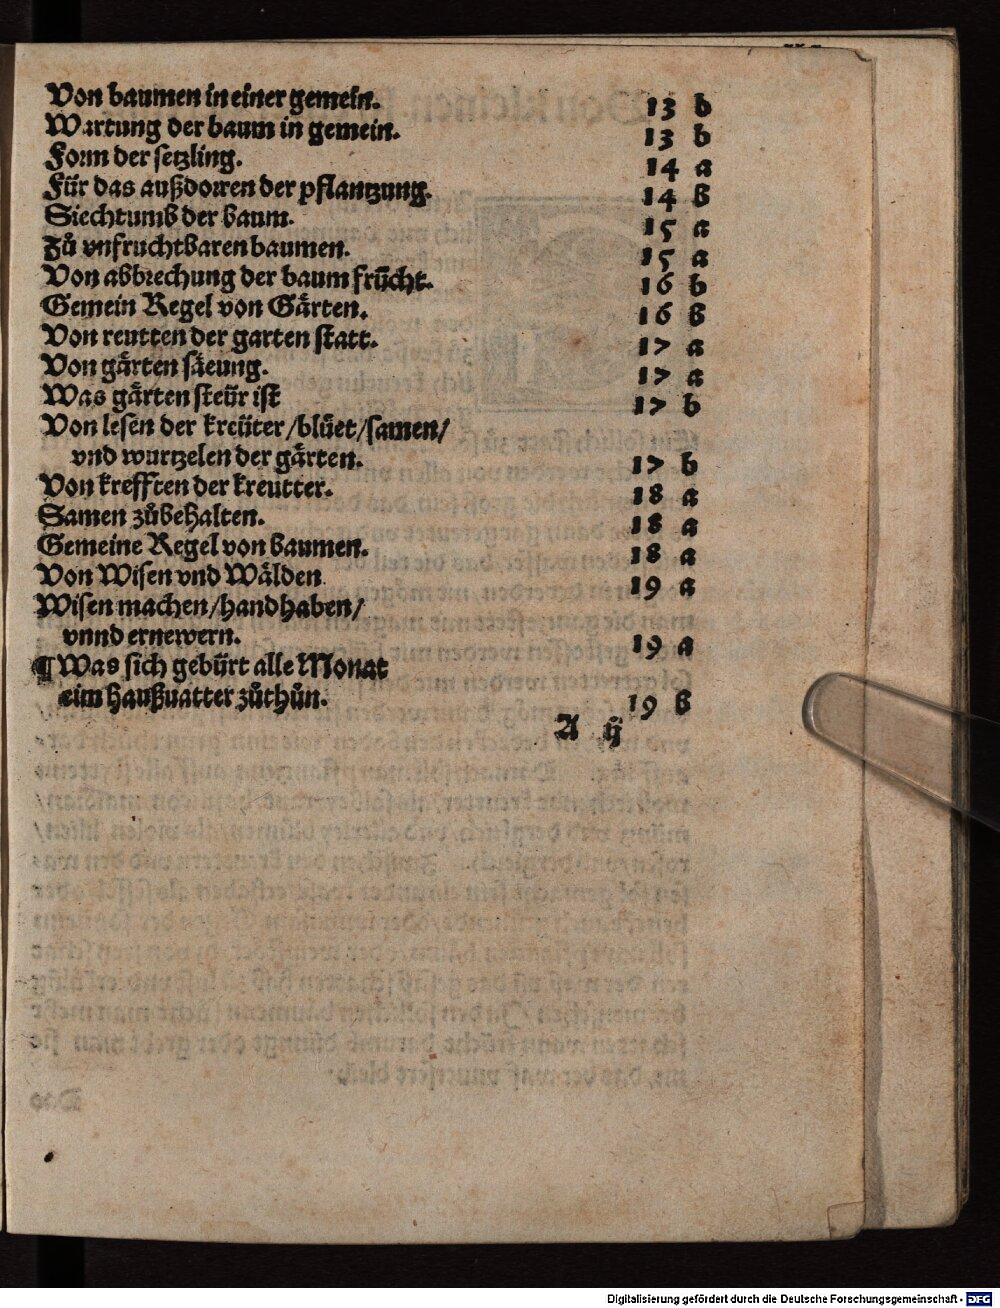 Von baumen in einer gemein. 13 b
Wartung der baum in gemein. 13 b
Form der setzling. 14 a
Für das außdorren der pflantzung. 14 b
Siechtumb der baum. 15 a
Zů vnfruchtbaren baumen. 15 a
Von abbrechung der baum frůcht. 16 b
Gemein Regel von Gärten. 16 b
Von reutten der garten statt. 17 a
Von gärten säeung. 17 a
Was gärten steür ist 17 b
Von lesen der kreüter/blüet/samen/
vnd wurtzelen der gärten. 17 b
Von krefften der kreutter. 18 a
Samen zůbehalten. 18 a
Gemeine Regel von baumen. 18 a
Von Wisen vnd Wälden 19 a
Wisen machen/handhaben/
vnnd ernewern. 19 a
¶ Was sich gebürt alle Monat
eim haußuatter zůthůn. 19 b
A ij
Digitalisierung gefördert durch die Deutsche Forschungsgemeinschaft - DFG